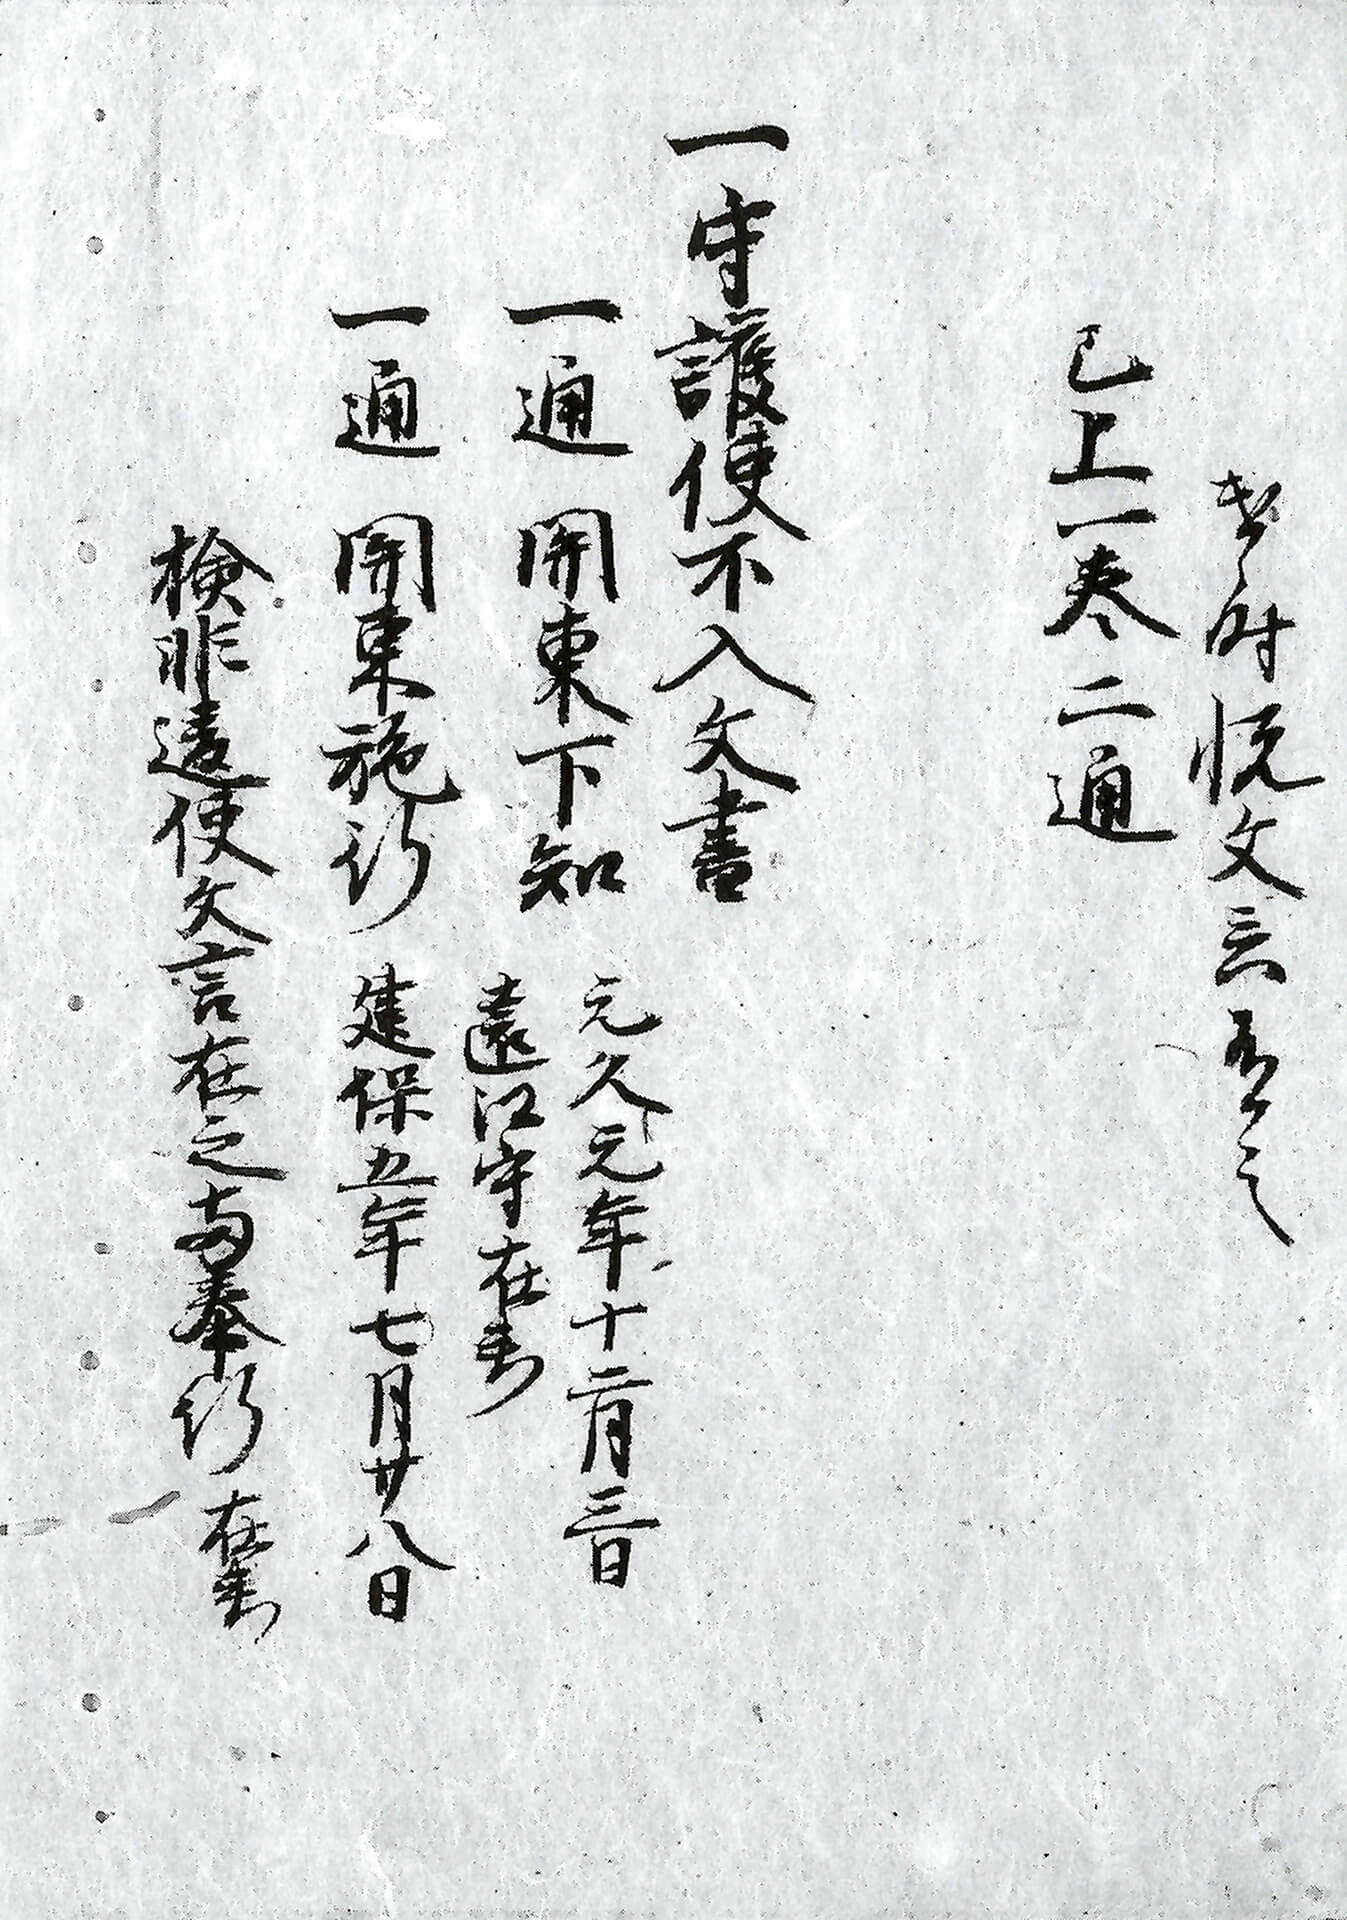 時 悦文
已上一巻二通
一守護使不入文書
一通 関東下知 元久元年十二月三日
遠江守在判
一通 関東施行 建保五年七月廿八日
検非違使文言在之両奉行 在判